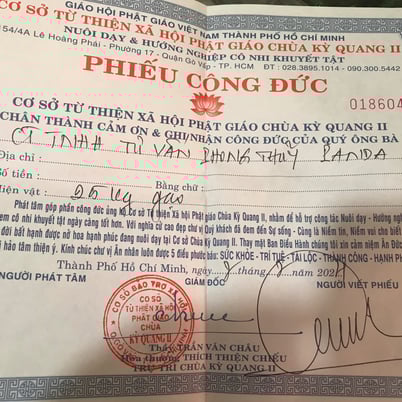 GIÁO HỘI PHẬT GIÁO VIỆT NAM THÀNH PHỐ HỒ CHÍ MINH
CƠ SỞ TỪ THIỆN XÃ HỘI PHẬT GIÁO CHÙA KỲ QUANG II
NUÔI DẠY & HƯỚNG NGHIỆP CÔ NHI KHUYẾT TẬT
154/4A Lê Hoàng Phái - Phường 17 - Quận Gò Vấp - TP. HCM ĐT: 028.3895.1014 - 090.300.5442
PHIẾU CÔNG ĐỨC
01860
CƠ SỞ TỪ THIỆN XÃ HỘI PHẬT GIÁO CHÙA KỲ QUANG II
CHÂN THÀNH CẢM ƠN & GHI NHẬN CÔNG ĐỨC CỦA QUÝ ÔNG BÀ
CT TNHH TƯ VẤN PHONG THUỶ PANDA
Địa chỉ:
Số tiền: Bằng chữ:
Hiện vật: 25 kg gạo
Phát tâm góp phần công đức ủng hộ Cơ sở Từ Thiện Xã Hội Phật Giáo Chùa Kỳ Quang II, nhằm để hỗ trợ công tác Nuôi dạy - Hướng
em cô nhi khuyết tật ngày càng tốt hơn. Với nghĩa cử cao đẹp như vị Quý khách đã đem đến Sự sống - Cùng là Niềm tin, Niềm vui cho
đời bất hạnh được nở hoa hạnh phúc đang nuôi dạy tại Cơ sở Chùa Kỳ Quang II. Thay mặt Ban Điều Hành chúng tôi xin cảm niệm Ân Đức
hảo tâm thiện ý. Kính chúc như vị Ân nhân luôn được 5 điều phước báu: SỨC KHỎE - TRÍ TUỆ - TÀI LỘC - THÀNH CÔNG - HẠNH
Thành Phố Hồ Chí Minh, ngày tháng năm 202
NGƯỜI PHÁT TÂM GIÁM ĐỐC NGƯỜI VIẾT PHIẾU
CƠ SỞ BẢO TRỢ XÃ HỘI
TỪ THIỆN XÃ HỘI
PHẬT GIÁO
CHÙA
KỲ QUANG II
Thầy TRẦN VĂN CHÂU
Hòa thượng THÍCH THIỆN CHIẾU
TRỤ TRÌ CHÙA KỲ QUANG II